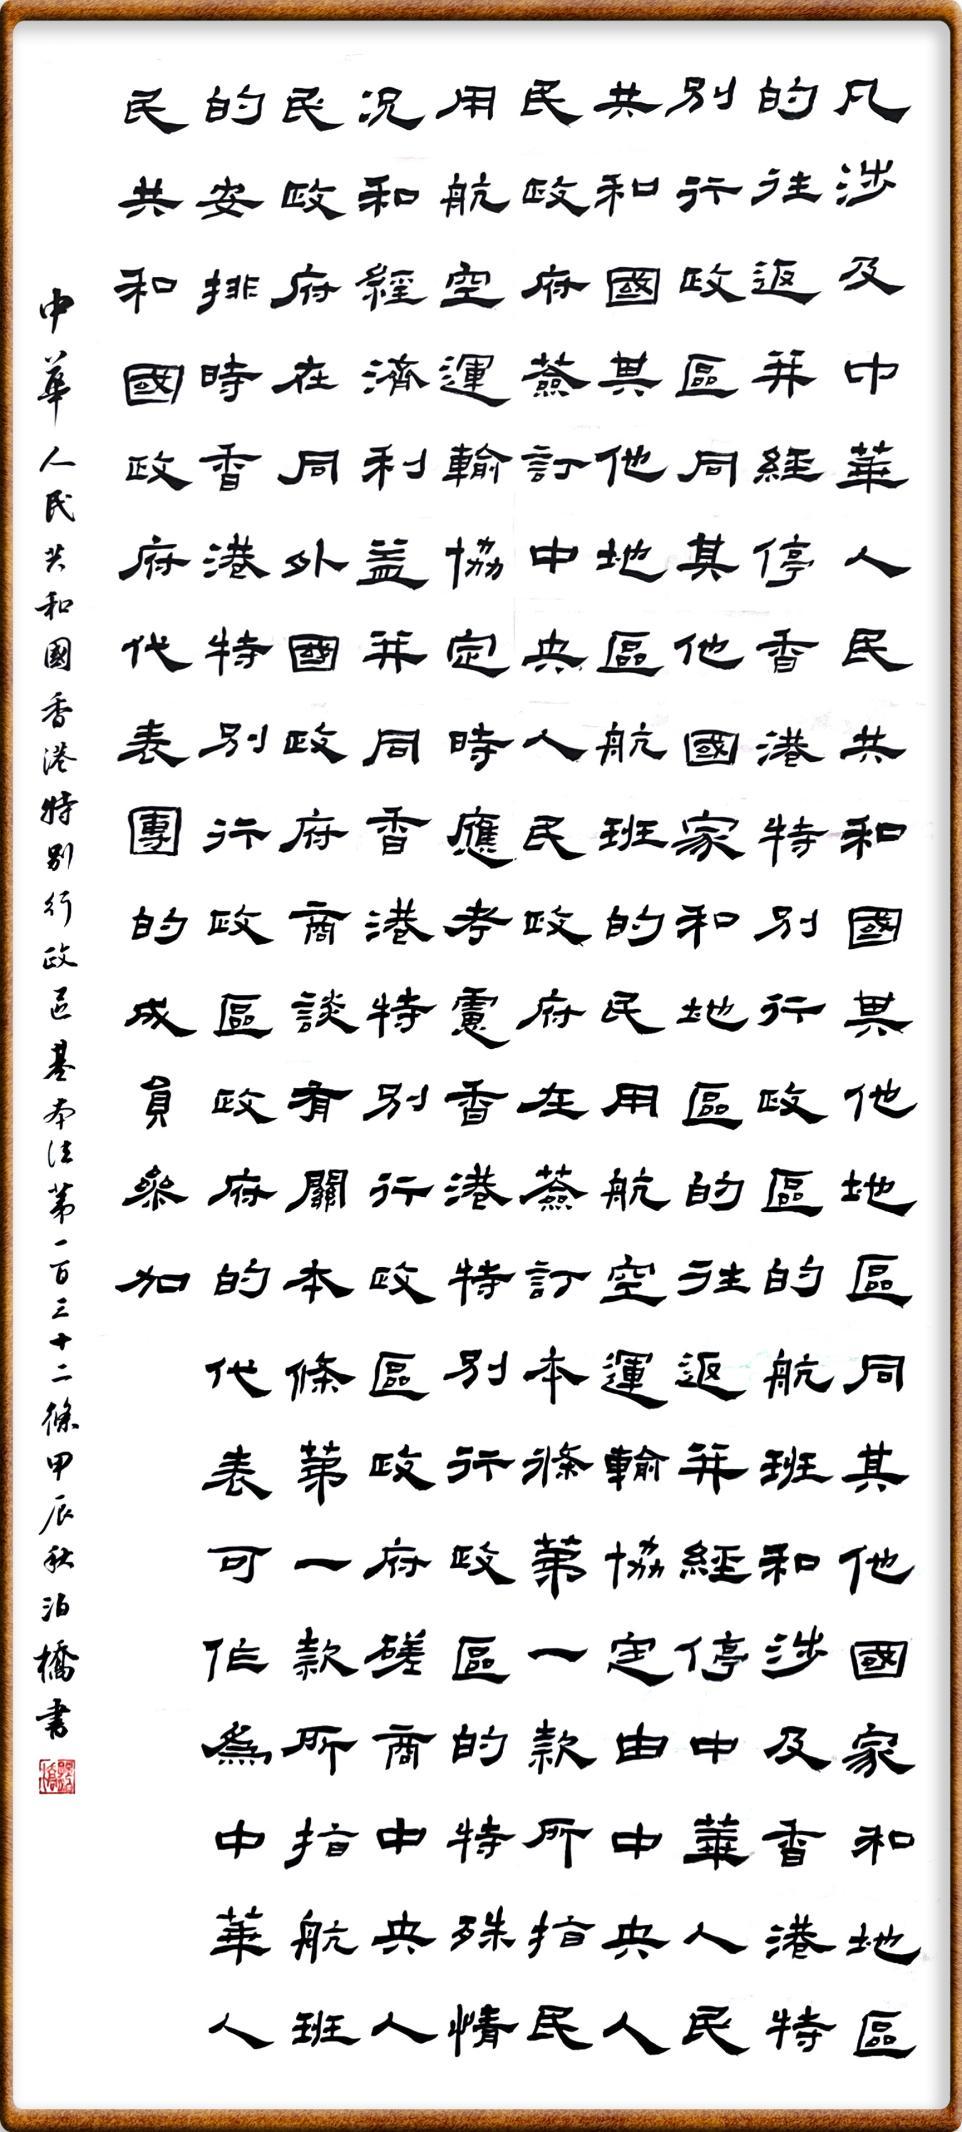 凡涉及中華人民共和國其他地區同其他國家和地區
的往返并經停香港特別行政區的航班和涉及香港特
別行政區同其他國家和地區的往返并經停中華人民
共和國其他地區航班的民用航空運輸協定由中央人
民政府簽訂中央人民政府在簽訂本條第一款所指民
用航空運輸協定時應考慮香港特別行政區的特殊情
況和經濟利益并同香港特別行政區政府磋商中央人
民政府在同外國政府商談有關本條第一款所指航班
的安排時香港特別行政區政府的代表可作爲中華人
民共和國政府代表團的成員參加
中華人民共和國香港特別行政區基本法第一百三十二條甲辰秋泊橋書